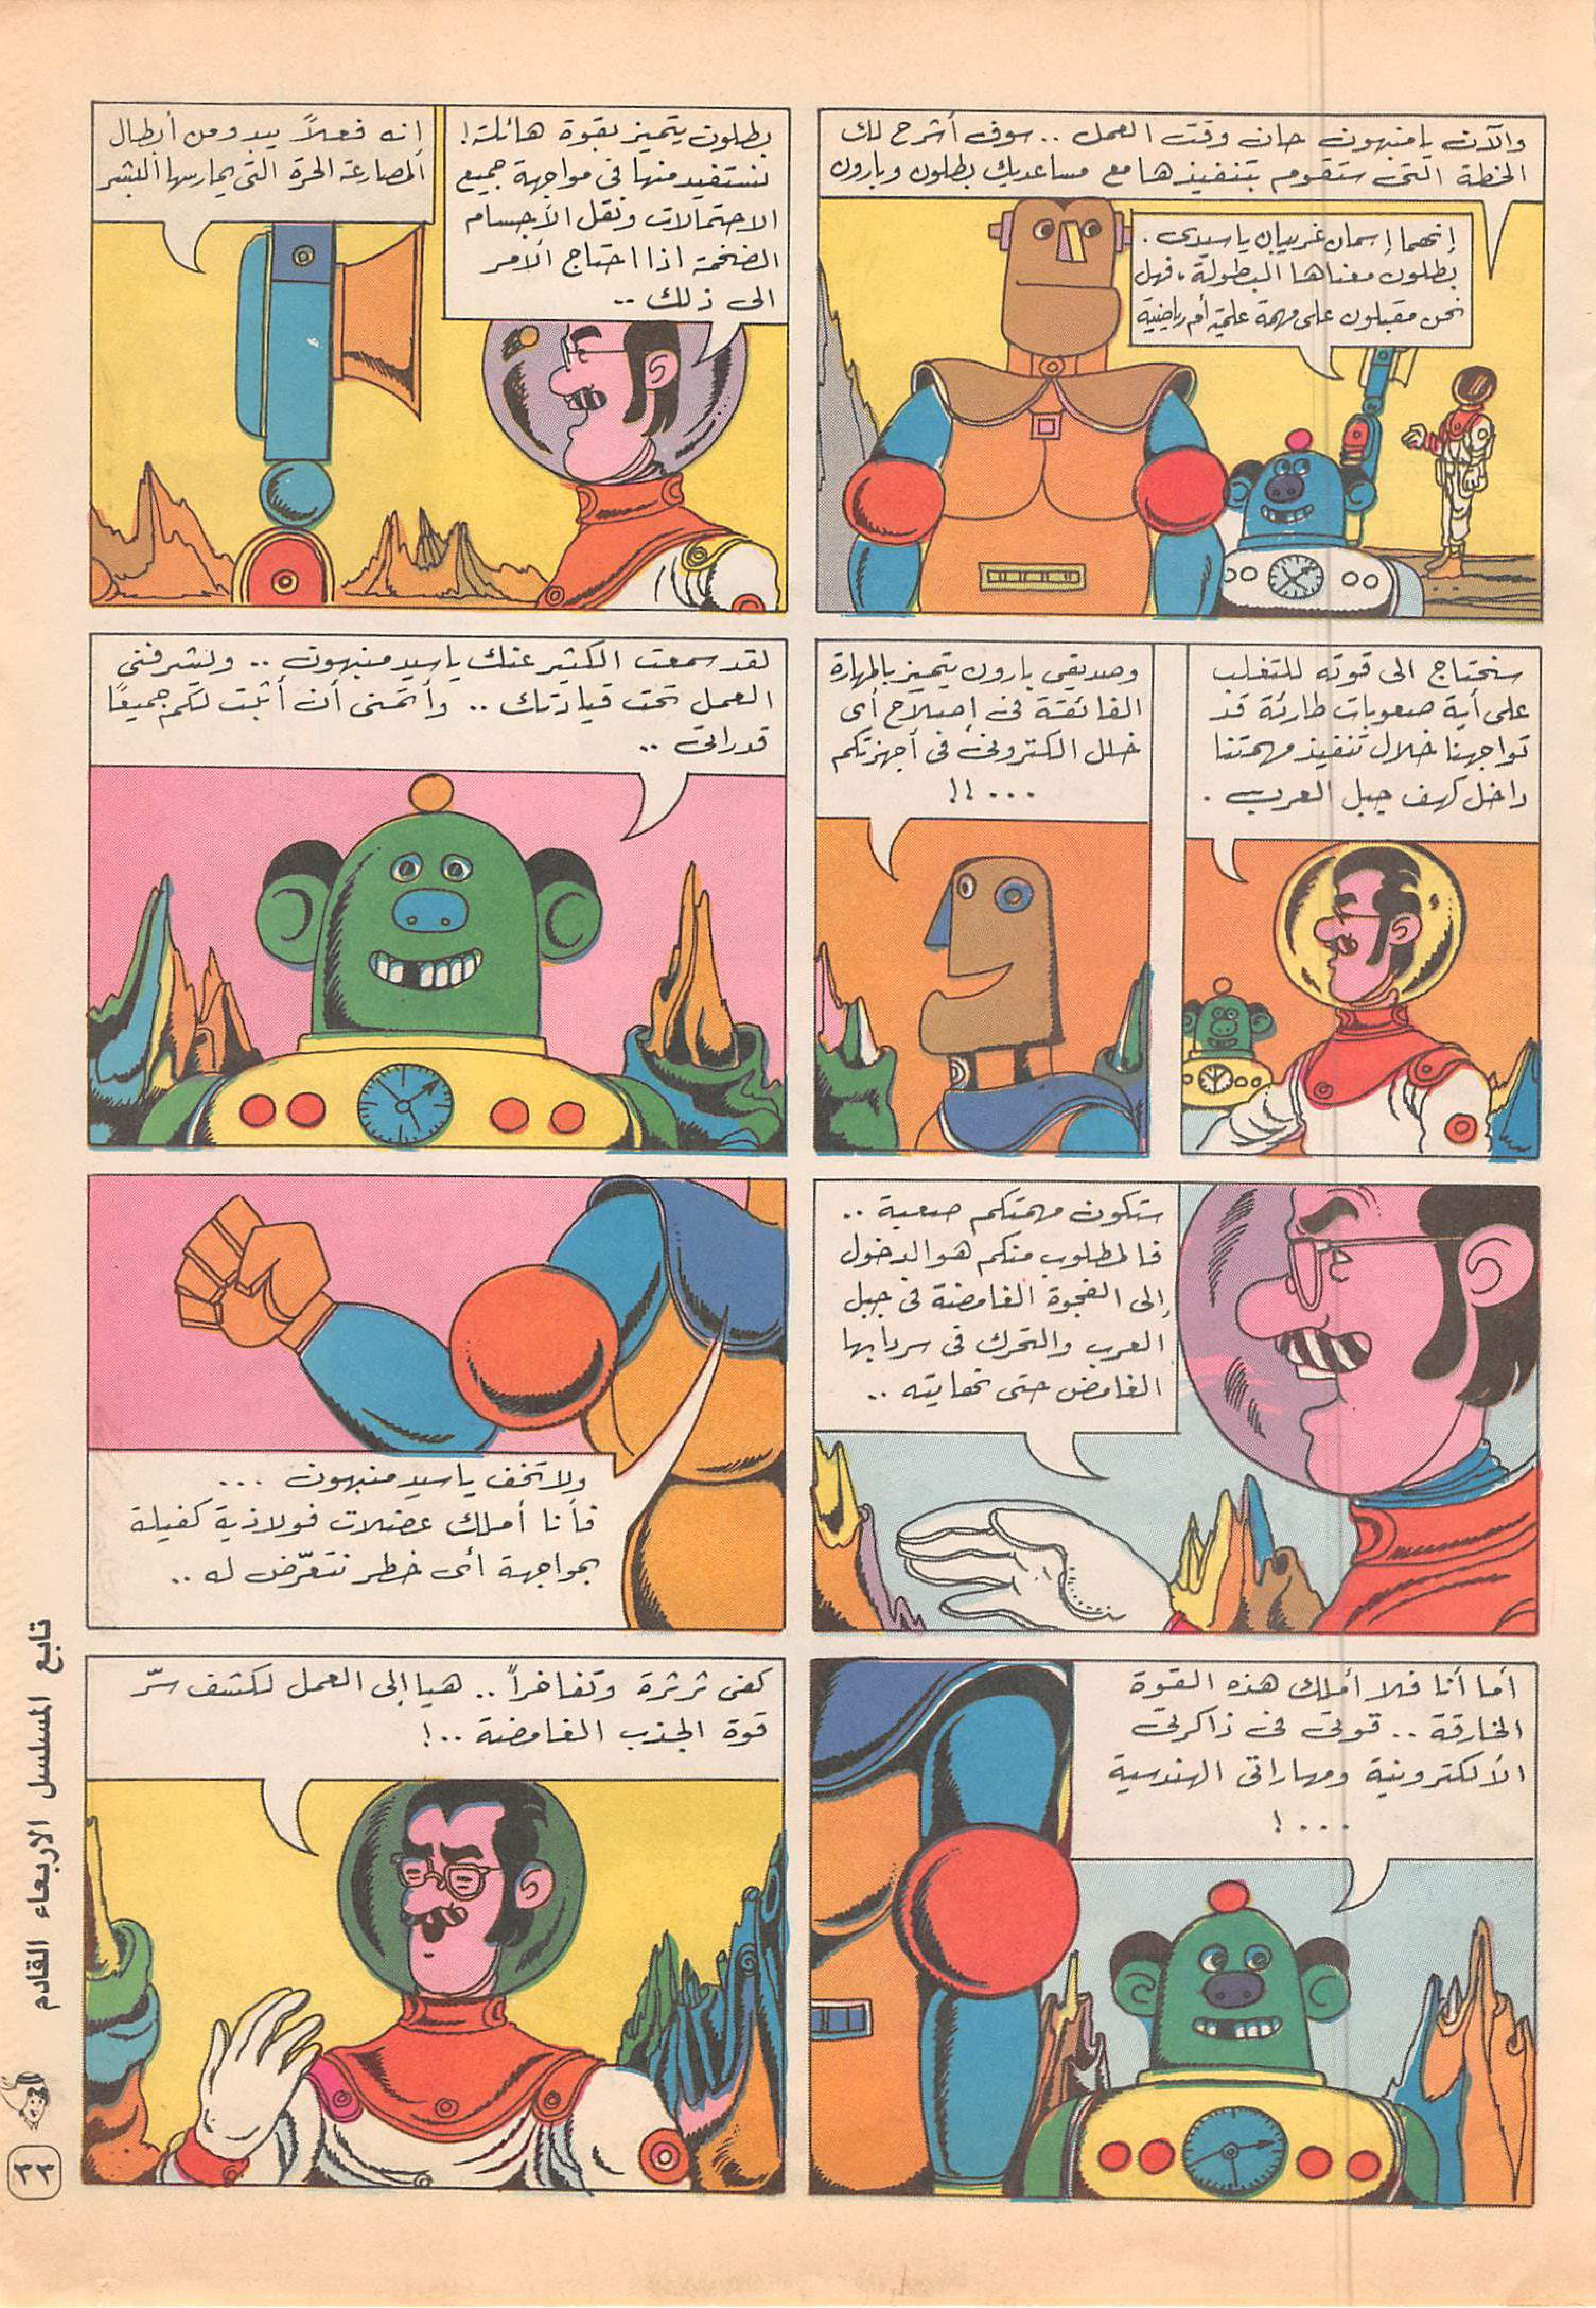 والآن يا منبهون حان وقت العمل .. سوف أشرح لك
الخطة التي ستقوم بتنفيذها مع مساعديك بطلون وبارون
إنهما إسمان غريبان يا سيدى .
بطلون معناها البطولة . فهل
نحن مقبلون على مهمة علمية أم رياضية
بطلون يتميز بقوة هائلة !
نستفيد منها فى مواجهة جميع
الاحتمالات ونقل الأجسام
الضخمة اذا احتاج الأمر
الى ذلك ..
إنه فعلاً يبدو من أبطال
المصارعة الحرة التى يمارسها البشر
سنحتاج الى قوته للتغلب
على أية صعوبات طارئة قد
تواجهنا خلال تنفيذ مهمتنا
داخل كهف جبل العرب .
وصديقى بارون يتميز بالمهارة
الفائقة فى إصلاح أى
خلل الكترونى فى أجهزتكم
...!!
لقد سمعت الكثير عنك يا سيد منبهون .. ويشرفنى
العمل تحت قيادتك .. وأتمنى أن أثبت لكم جميعًا
قدراتى ..
ستكون مهمتكم صعبة ..
فالمطلوب منكم هو الدخول
إلى الفجوة الغامضة فى جبل
العرب والتحرك فى سردابها
الغامض حتى نهايته ..
ولا تخف يا سيد منبهون ...
فأنا أملك عضلات فولاذية كفيلة
بمواجهة أى خطر نتعرّض له ..
أما أنا فلا أملك هذه القوة
الخارقة .. قوتى فى ذاكرتى
الألكترونية ومهاراتى الهندسية
...!
كفى ثرثرة وتفاخراً .. هيا إلى العمل لكشف سرّ
قوة الجذب الغامضة ..!
تابع المسلسل الاربعاء القادم
٢٢